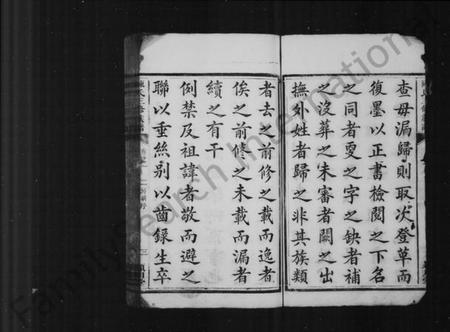 查毋漏歸則取次登草而
復墨以正書檢閱之下名
之同者更之字之缺者補
之沒葬之未審者闕之出
撫外姓者歸之非其族類
者去之前修之載而逸者
俟之前修之未載而漏者
續之有干
例禁及祖諱者敬而避之
聯以垂絲別以齒錄生卒
FamilySearch International